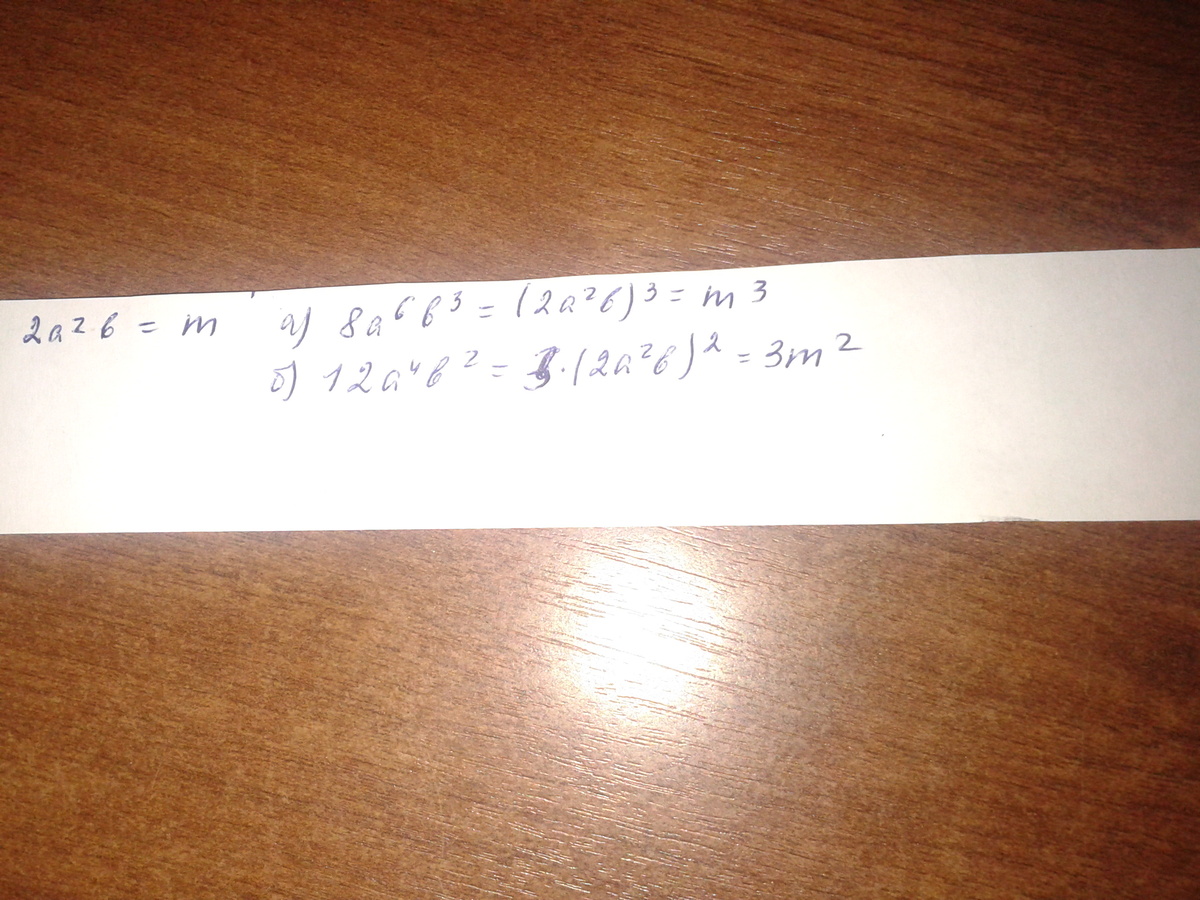 2a²b = m а) 8a⁶b³ = (2a²b)³ = m³
б) 12a⁴b² = 3·(2a²b)² = 3m²